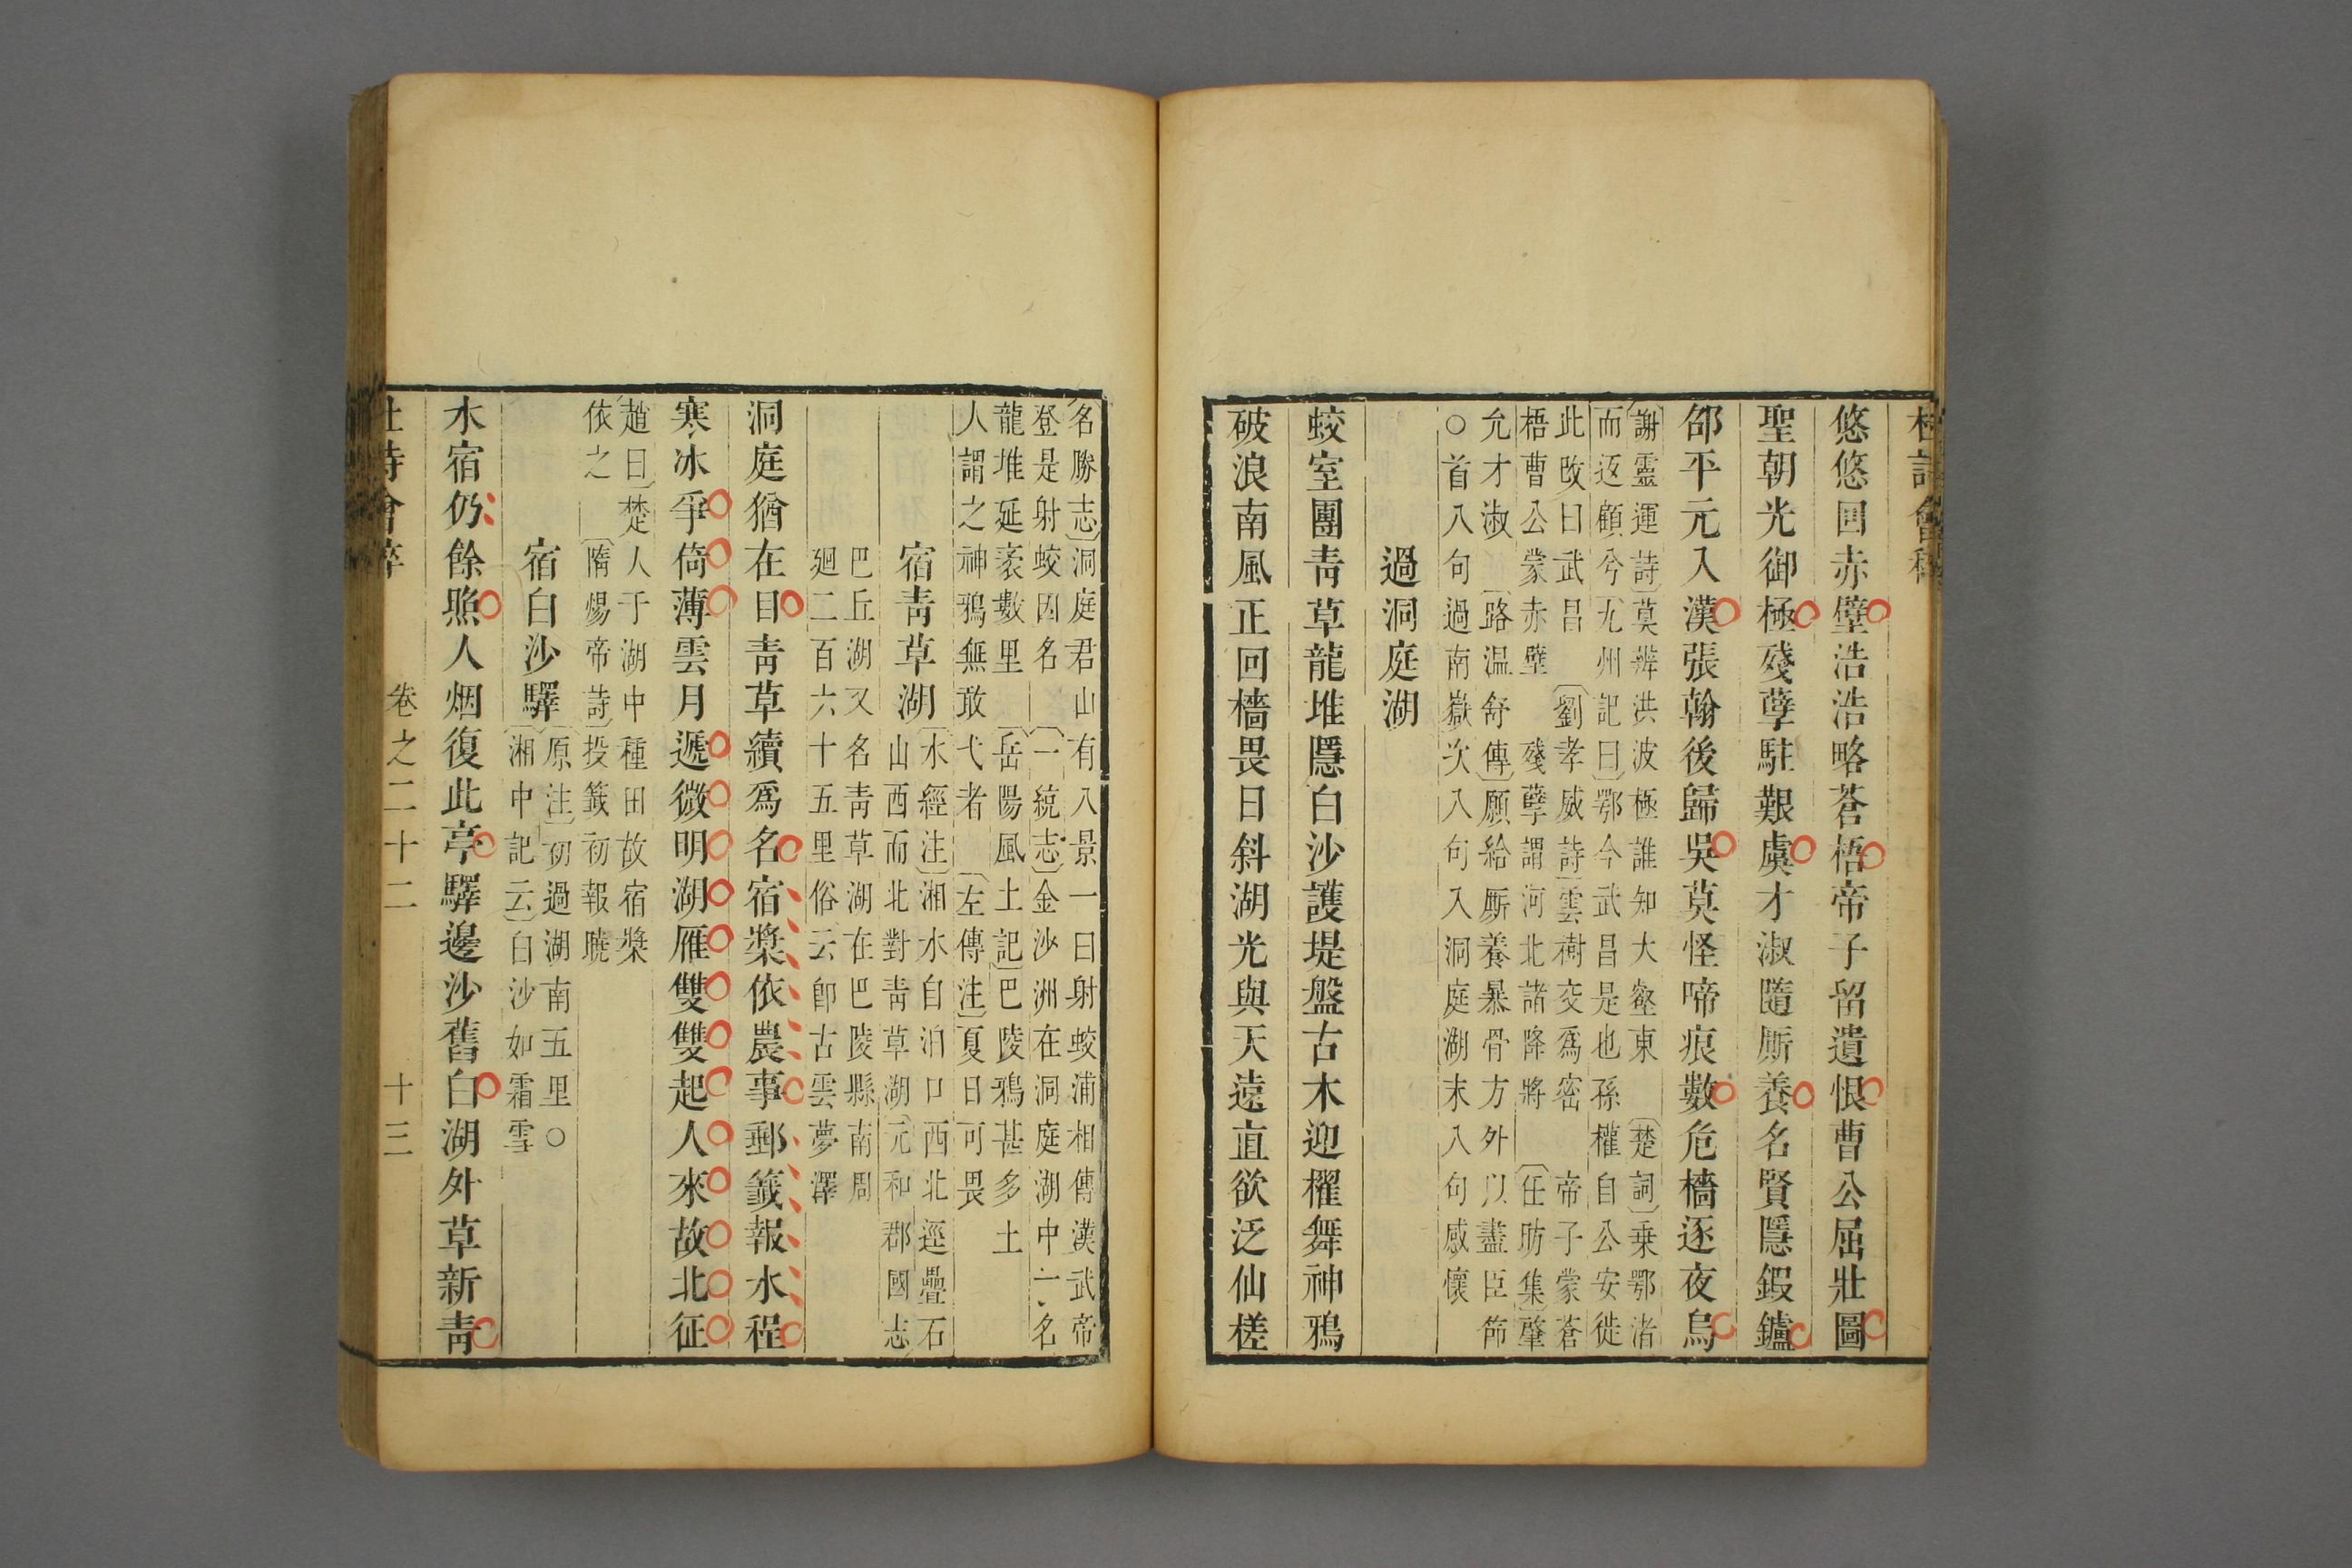 杜詩會稡
悠悠回赤壁浩浩略蒼梧帝子留遺恨曹公屈壯圖
聖朝光御極殘孽駐艱虞才淑隨厮養名賢隱鍜鑪
邵平元入漢張翰後歸吳莫怪啼痕數危檣逐夜烏
謝靈運詩莫辨洪波極誰知大壑東 楚詞乗鄂渚
而返顧兮 九州記曰鄂今武昌是也孫權自公安徙
此改曰武昌 劉孝威詩雲樹交爲密 帝子蒙蒼
梧曹公蒙赤壁 殘孽謂河北諸降將 任昉集肇
允才淑 路温舒傳願給厮養暴骨方外以盡臣節
○首八句過南嶽次八句入洞庭湖末八句感懷
過洞庭湖
蛟室圍青草龍堆隱白沙護堤盤古木迎櫂舞神鴉
破浪南風正回檣畏日斜湖光與天遠直欲泛仙槎
名勝志洞庭君山有八景一曰射蛟浦相傳漢武帝
登是射蛟因名 一統志金沙洲在洞庭湖中一名
龍堆延袤數里 岳陽風土記巴陵鴉甚多土
人謂之神鴉無敢弋者 左傳注夏日可畏
宿青草湖
水經注湘水自汨口西北逕疊石
山西而北對青草湖 元和郡國志
巴丘湖又名青草湖在巴陵縣南周
廻二百六十五里俗云卽古雲夢澤
洞庭猶在目青草續爲名宿槳依農事郵籤報水程
寒冰爭倚薄雲月遞微明湖雁雙雙起人來故北征
趙曰楚人于湖中種田故宿槳
依之 隋煬帝詩投籤初報曉
宿白沙驛
原注初過湖南五里○
湘中記云白沙如霜雪
水宿仍餘照人烟復此亭驛邊沙舊白湖外草新青
杜詩會稡 卷之二十二 十三